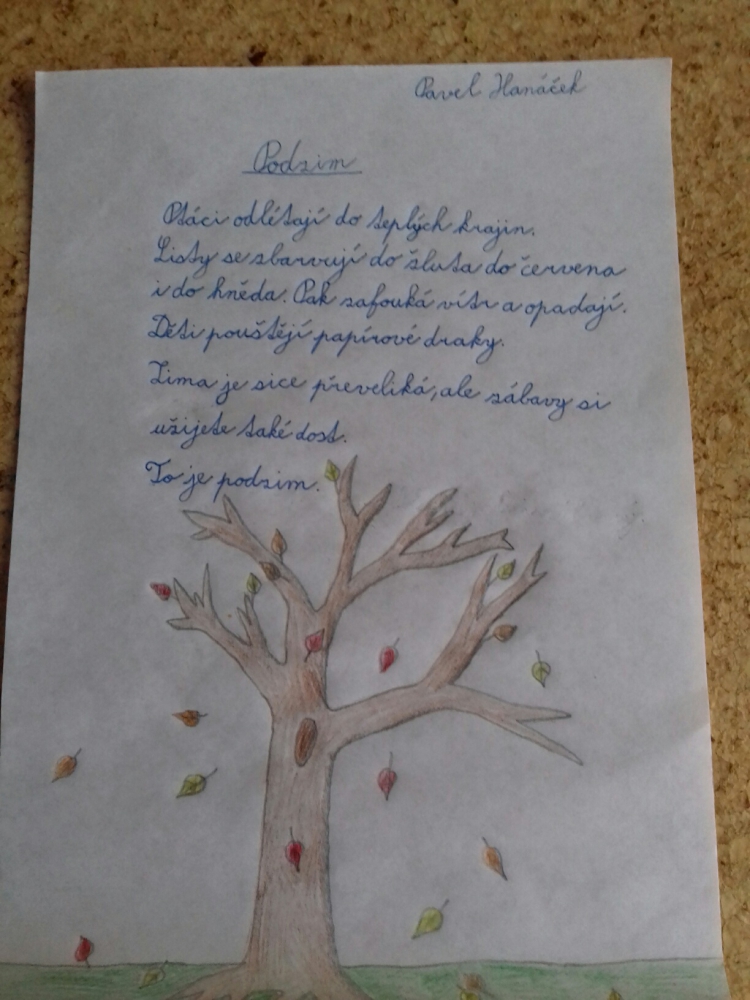 Pavel Hanáček
Podzim
Ptáci odlétají do teplých krajin.
Listy se zbarvují do žluta do červena
i do hněda. Pak zafouká vítr a opadají.
Děti pouštějí papírové draky.
Zima je sice převeliká, ale zábavy si
užijete také dost.
To je podzim.